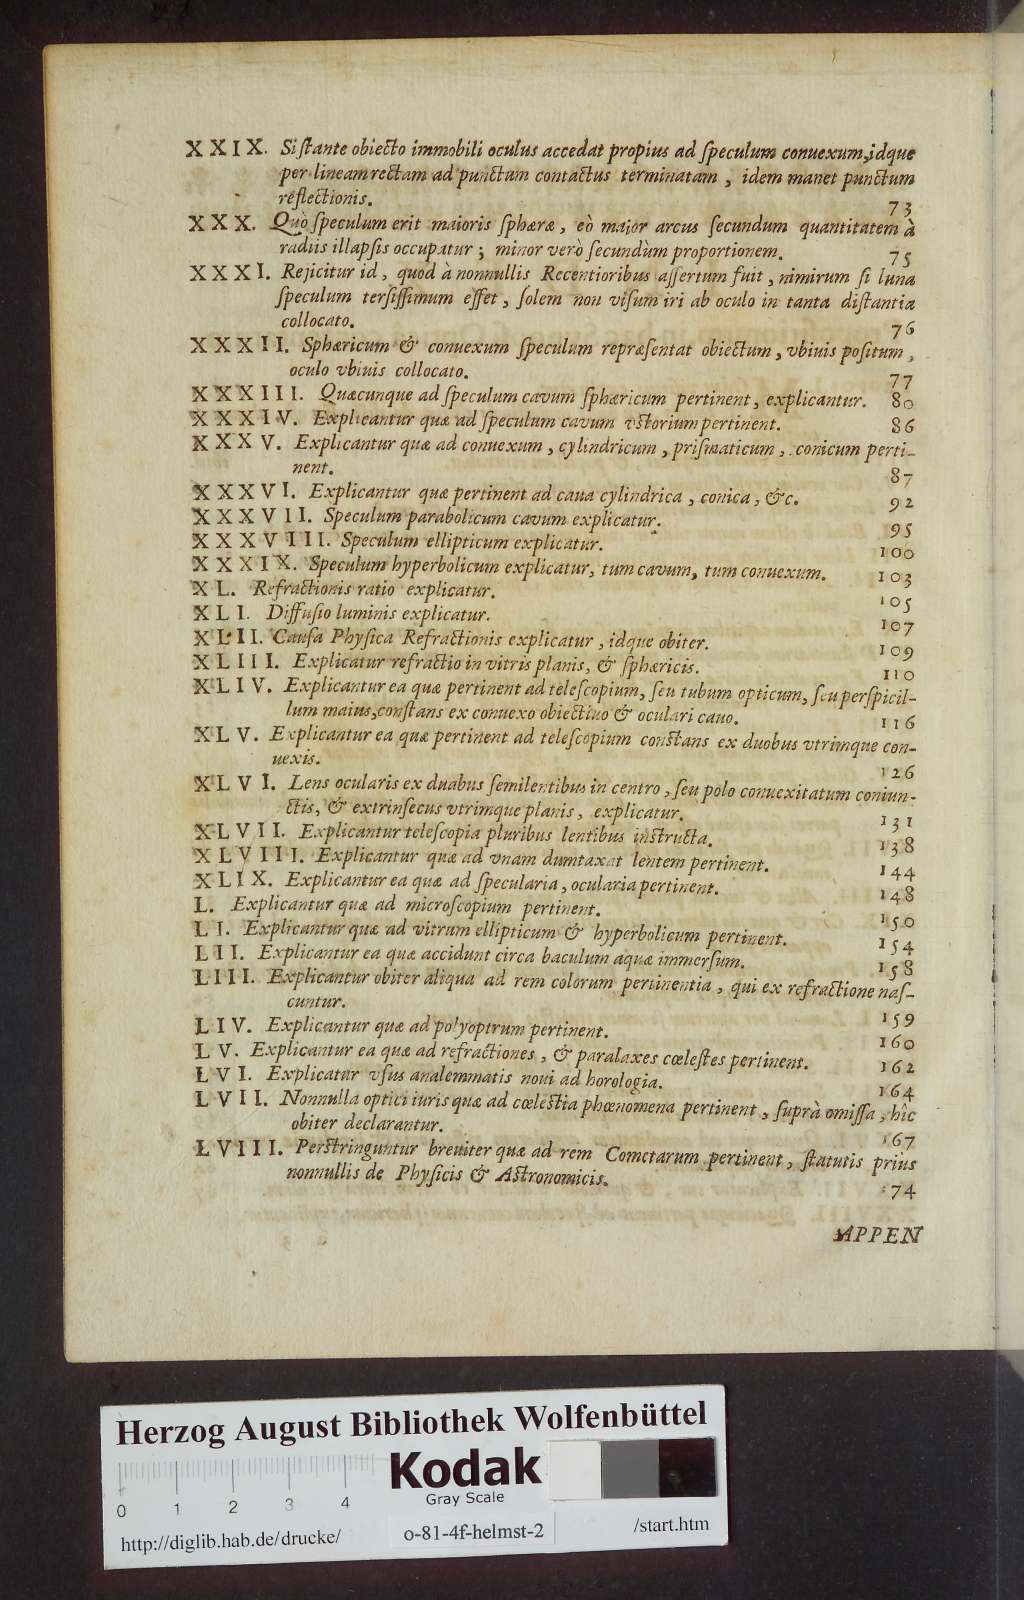 XXIX. Siſtante obiecto immobili oculus accedat propius ad ſpeculum conuexum, idque
per lineam rectam ad punctum contactus terminatam, idem manet punctum
reflectionis. 73
XXX. Quò ſpeculum erit maioris ſphæræ, eò maior arcus ſecundum quantitatem à
radiis illapſis occupatur; minor verò ſecundùm proportionem. 75
XXXI. Rejicitur id, quod à nonnullis Recentioribus aſſertum fuit, nimirum ſi luna
ſpeculum terſiſſimum eſſet, ſolem non viſum iri ab oculo in tanta diſtantia
collocato. 76
XXXII. Sphæricum & conuexum ſpeculum repræſentat obiectum, vbiuis poſitum,
oculo vbiuis collocato. 77
XXXIII. Quæcunque ad ſpeculum cavum ſphæricum pertinent, explicantur. 80
XXXIV. Explicantur quæ ad ſpeculum cavum vstorium pertinent. 86
XXXV. Explicantur quæ ad conuexum, cylindricum, priſmaticum, conicum perti-
nent. 87
XXXVI. Explicantur quæ pertinent ad caua cylindrica, conica, &c. 92
XXXVII. Speculum parabolicum cavum explicatur. 95
XXXVIII. Speculum ellipticum explicatur. 100
XXXIX. Speculum hyperbolicum explicatur, tum cavum, tum conuexum. 103
XL. Refractionis ratio explicatur. 105
XLI. Diffuſio luminis explicatur. 107
XLII. Cauſa Phyſica Refractionis explicatur, idque obiter. 109
XLIII. Explicatur refractio in vitris planis, & ſphæricis. 110
XLIV. Explicantur ea quæ pertinent ad teleſcopium, ſeu tubum opticum, ſeu perſpicil-
lum maius, conſtans ex conuexo obiectiuo & oculari cauo. 116
XLV. Explicantur ea quæ pertinent ad teleſcopium constans ex duobus vtrimque con-
uexis. 126
XLVI. Lens ocularis ex duabus ſemilentibus in centro, ſeu polo conuexitatum coniun-
ctis, & extrinſecus vtrimque planis, explicatur. 131
XLVII. Explicantur teleſcopia pluribus lentibus instructa. 138
XLVIII. Explicantur quæ ad vnam dumtaxat lentem pertinent. 144
XLIX. Explicantur ea quæ ad ſpecularia, ocularia pertinent. 148
L. Explicantur quæ ad microſcopium pertinent. 150
LI. Explicantur quæ ad vitrum ellipticum & hyperbolicum pertinent. 154
LII. Explicantur ea quæ accidunt circa baculum aquæ immerſum. 158
LIII. Explicantur obiter aliqua ad rem colorum pertinentia, qui ex refractione naſ-
cuntur. 159
LIV. Explicantur quæ ad polyoptrum pertinent. 160
LV. Explicantur ea quæ ad refractiones, & paralaxes cœleſtes pertinent. 162
LVI. Explicatur vſus analemmatis noui ad horologia. 164
LVII. Nonnulla optici iuris quæ ad cœleſtia phœnomena pertinent, ſuprà omiſſa, hîc
obiter declarantur. 167
LVIII. Perſtringuntur breuiter quæ ad rem Cometarum pertinent, ſtatutis prius
nonnullis de Phyſicis & Astronomicis. 174
APPEN
Herzog August Bibliothek Wolfenbüttel
Kodak
Gray Scale
0 1 2 3 4
http://diglib.hab.de/drucke/ o-81-4f-helmst-2 /start.htm